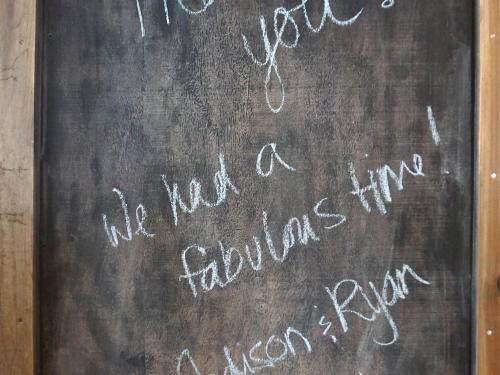 you!
We had a
fabulous time!
Madison & Ryan